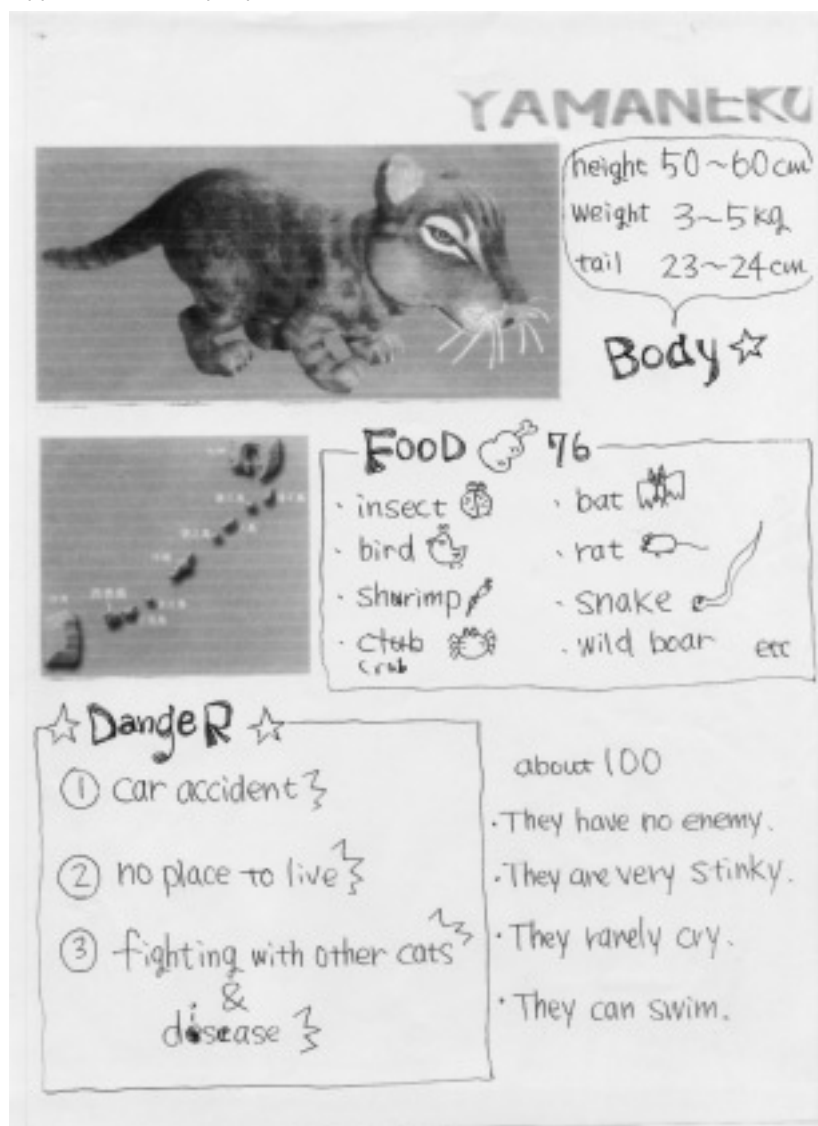 YAMANEKO
height 50~60cm
weight 3~5kg
tail 23~24cm
Body ☆
FOOD 76
· insect
· bird
· shurimp
· club
crab
· bat
· rat
· snake
· wild boar etc
☆ DangeR ☆
① car accident
② no place to live
③ fighting with other cats
&
disease
about 100
· They have no enemy.
· They are very stinky.
· They rarely cry.
· They can swim.